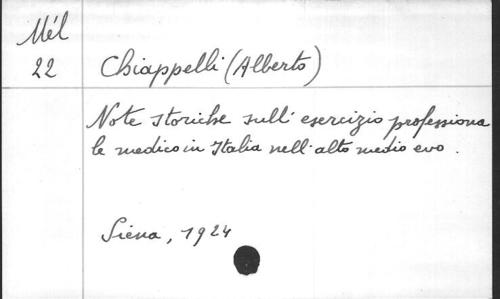 Mél
22
Chiappelli (Alberto)
Note storiche sull' esercizio professiona
le medico in Italia nell' alto medio evo.
Siena, 1924